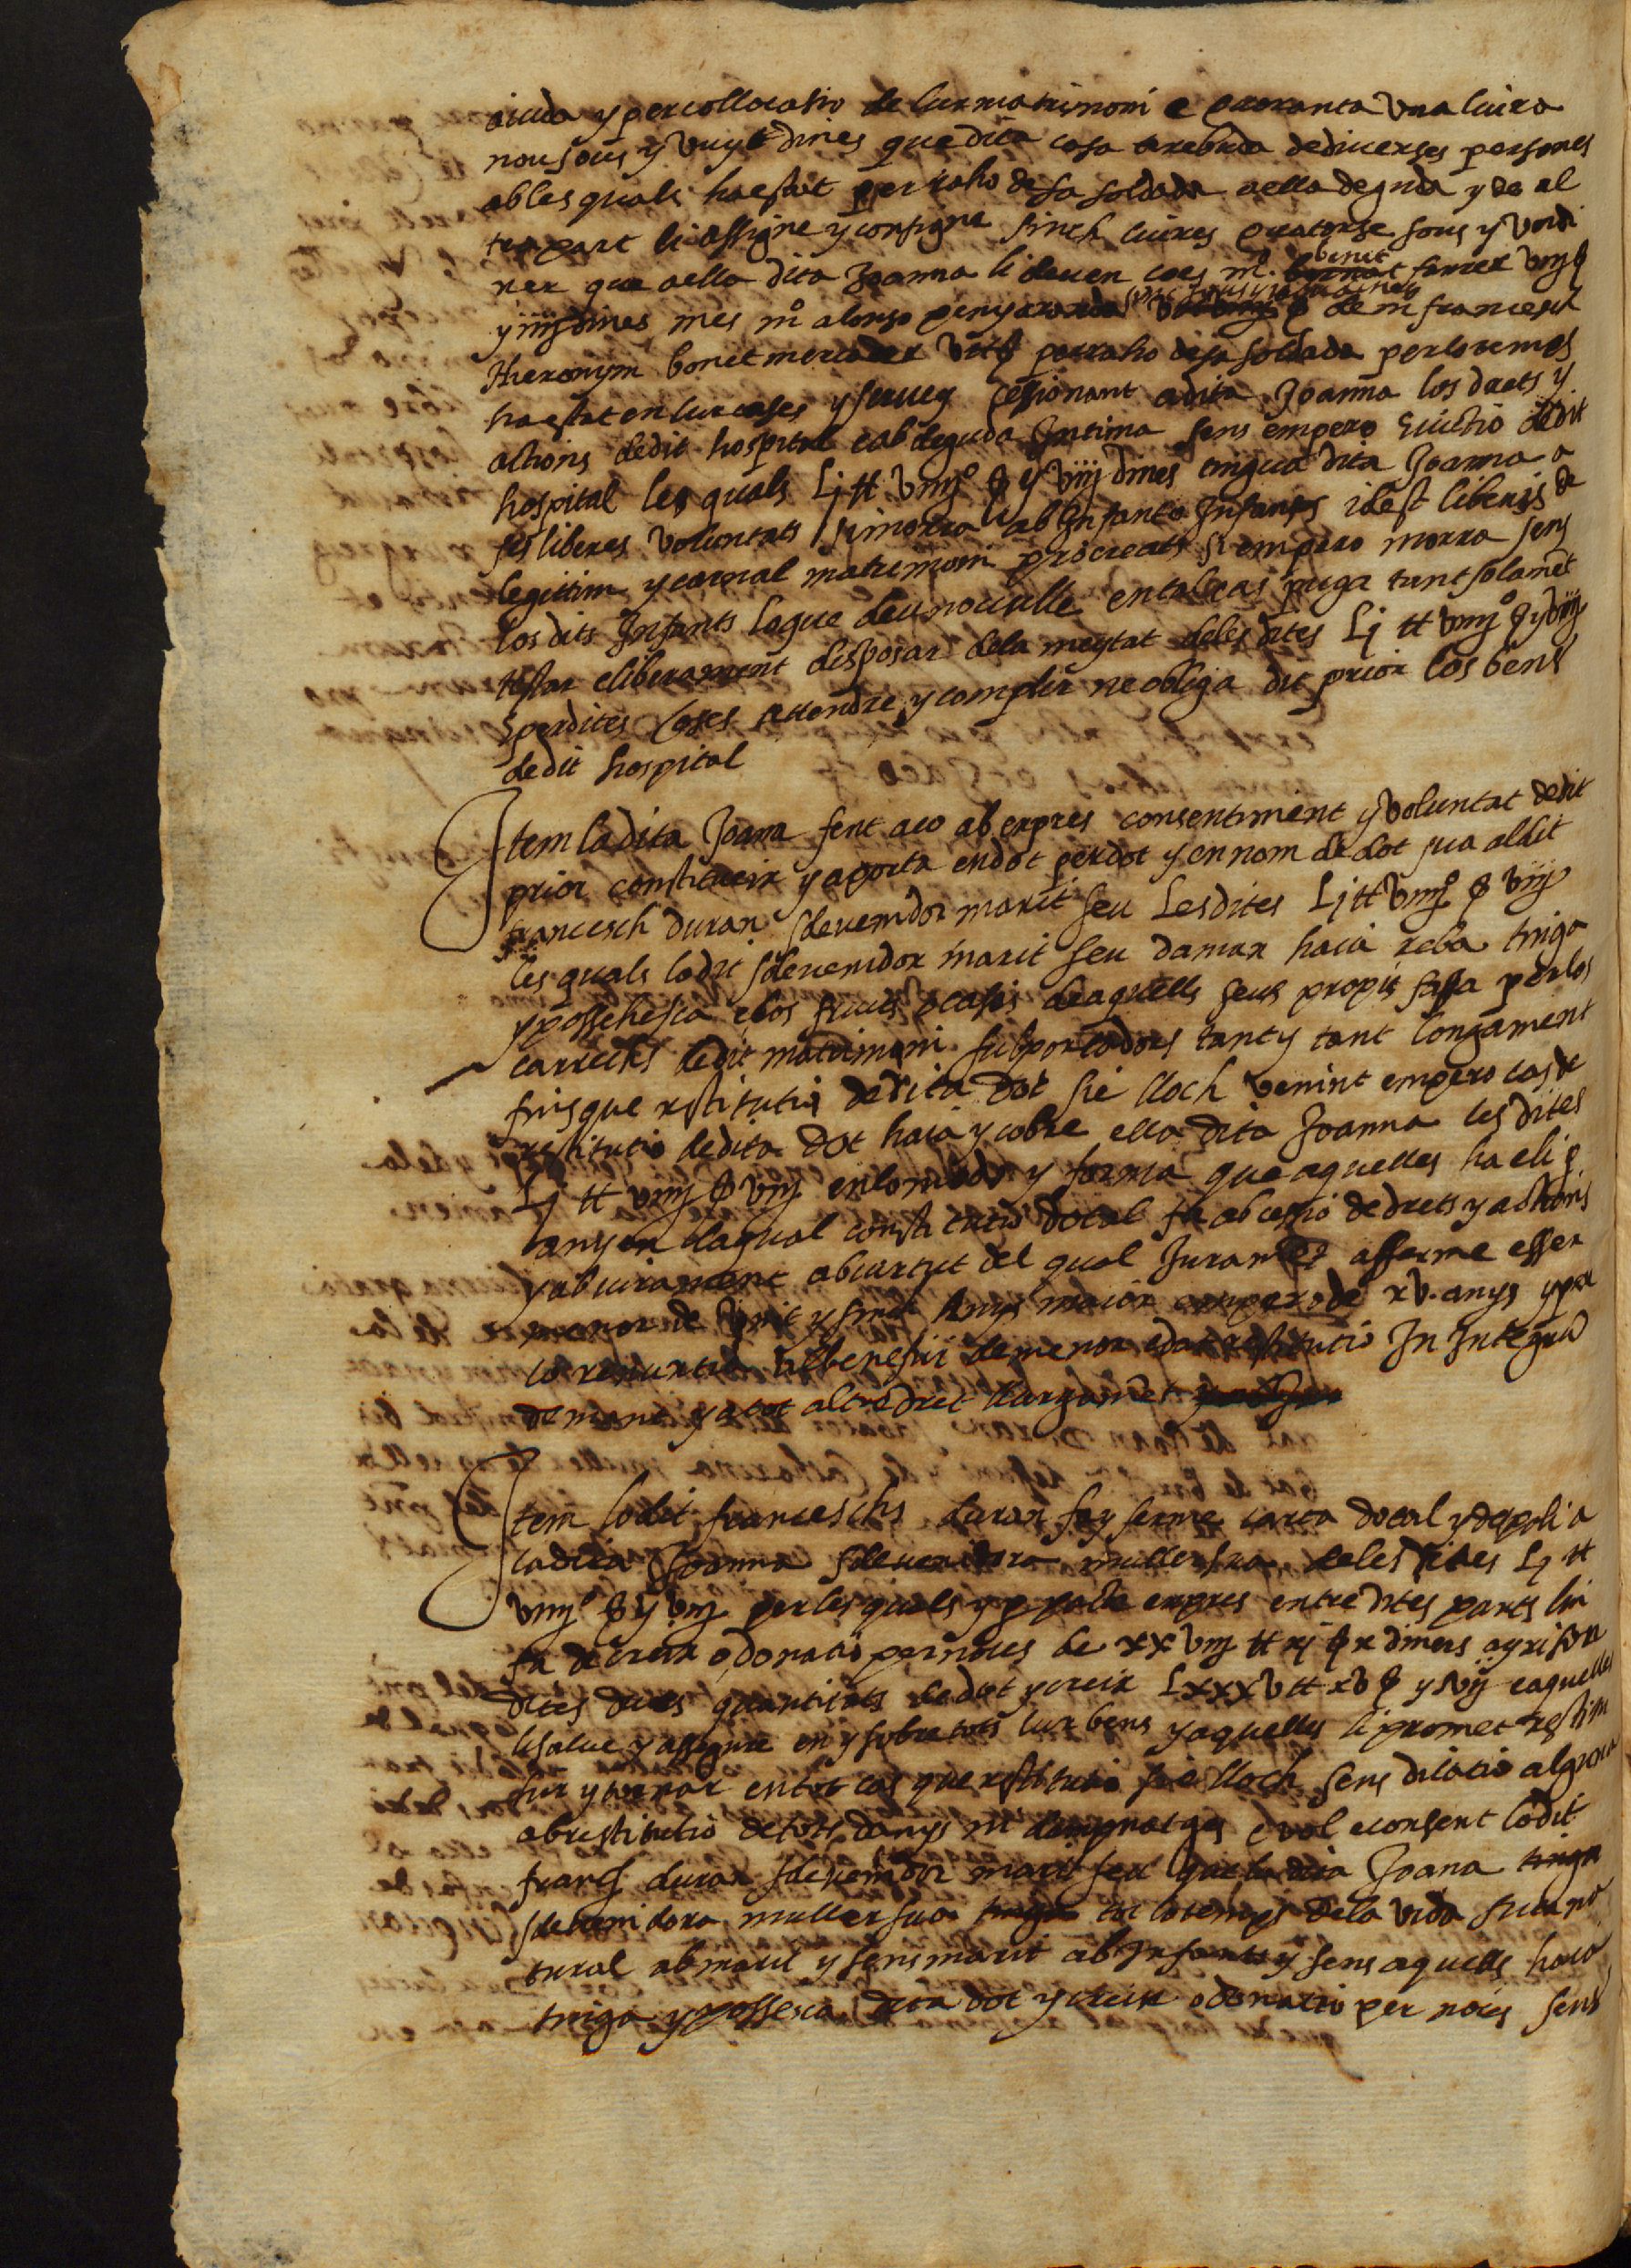 aiuda y per collocatio de lur matrimoni e coranta una liura
nou sous y vuyt dines que dita casa a rebuda de diverses persones
ab les quals ha estat per raho de sa soldada a ella deguda y de al
tra part li assigne y consigne sinch liures quatorse sous y un di
ner que a ella dita Joanna li deuen ço es mº. benet ferrer viiij ſ
y iiij dines mes mº alonso penyaranda sinc sous y de mº francesch
Hieronym bonet mercader ſ per raho de sa soldada per lo temps
ha estat en lur cases y servey cessionant a dita Joanna los drets y
actions de dit hospital e ab deguda intima sens empero evictio de dit
hospital les quals Lj tt viiijº ſ y viiij dines tingua dita Joanna a
ses liberes voluntats si morra ab infant o infants id est liberis de
legittim y carnal matrimoni procreats si empero morra sens
los dits Infants lo que deu no vulle en tal cas puga tant solament
testar e liberament disposar de la meytat de les dites Lj tt viiijº ſ y viiij
E per dites coses attendre y complir ne obliga dit prior los bens
de dit hospital
Item la dita Joana fent aço ab expres consentiment y voluntat de dit
prior constitueix y aporta en dot per dot y en nom de dot sua al dit
francesch duran sdevenidor marit seu Les dites Lj tt viiijº ſ viiij
les quals lo dit sdevenidor marit seu damar haia reba tinga
y possehesca e los fruits de aquells seus propis fassa per los
carrechs de dit matrimoni subportadors tant y tant longament
fins que restitutio de dita dot sie lloch venint empero cas de
restitutio de dita dot haia y cobre ella dita Joanna les dites
Lj tt viiij ſ viiij en lo modo y forma que aquelles ha
en la qual constitutio dotal fa ab cessio de drets y actions
y ab jurament ab virtut del qual Jurament afferme esser
menor de vint y sinch anys maior empero de xv. anys y per
ço renuntia al benefici de menor edat restitutio In Integrum
demanar y a tot altre dret llargament
Item lo dit franceschs duran fa y ferme carta dotal y despoli a
la dita Joanna sdevenidora muller sua de les dites Lj tt
viiijº ſ y viiij per les quals y per pacte expres entre dites parts lin
fa de creix o donatio per noces de xxviiij tt xj ſ x diners axi son
dites dues quantitats de dot y creix Lxxxv tt xv ſ y vij e aquelles
li salve y assigne en y sobre tots lur bens y aquelles li promet restitu
hir y tornar en tot cas que restitutio sie lloch sens dilatio alguna
ab restitutio de tots danys e vol e consent lo dit
duran sdevenidor marit seu que la dita Joana tinga
sdevenidora muller sua tot lo temps de la vida sua na
tural ab marit y sens marit ab Infants y sens aquells haia
tinga y possesca dita dot y creix o donatio per noces sens